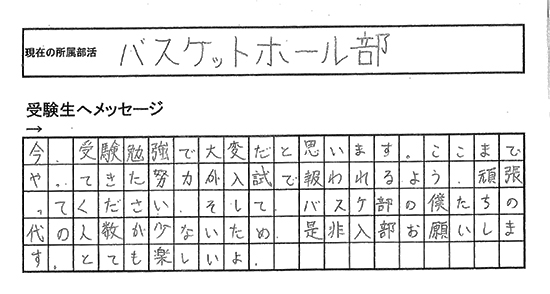 現在の所属部活 バスケットボール部
受験生へメッセージ
→
今、受験勉強で大変だと思います。ここまで
やってきた努力が入試で報われるよう、頑張
ってください。そして、バスケ部の僕たちの
代の人数が少ないため、是非入部お願いしま
す。とても楽しいよ。